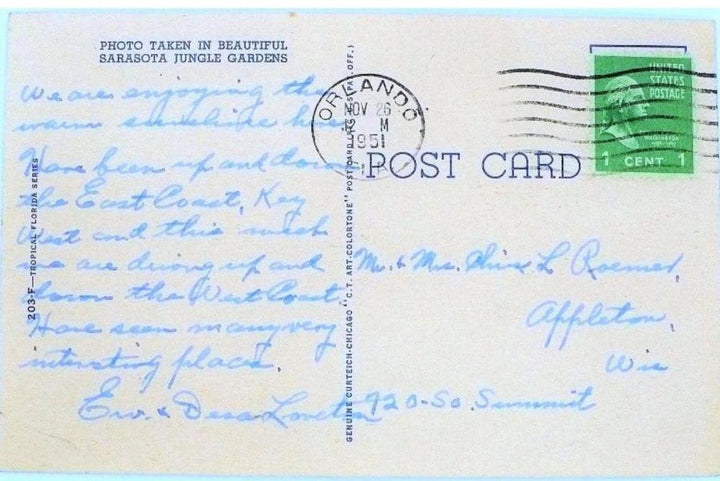 PHOTO TAKEN IN BEAUTIFUL
SARASOTA JUNGLE GARDENS
We are enjoying the
warm sunshine here
Have been up and down
the East Coast, Key
West and this week
we are driving up and
down the West Coast.
Have seen many very
intersting places.
Erv. &
203-F—TROPICAL FLORIDA SERIES
GENUINE CURTEICH-CHICAGO "C.T. ART-COLORTONE" POST CARD (REG. U.S. PAT. OFF.)
ORLANDO
NOV 26
M
1951
POST CARD
UNITED
STATES
POSTAGE
WASHINGTON
1 CENT 1
Mr. & Mrs. L. Roemer,
Appleton,
Wis
720-So. Summit